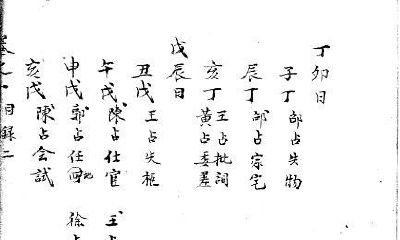 丁卯日
子丁 邵占失物
辰丁 邵占家宅
亥丁 王占批詞
黃占委差
戊辰日
丑戊 王占失柩
午戊 陳占仕官 王占
申戊 郭占任 徐占
亥戊 陳占会試
目錄二